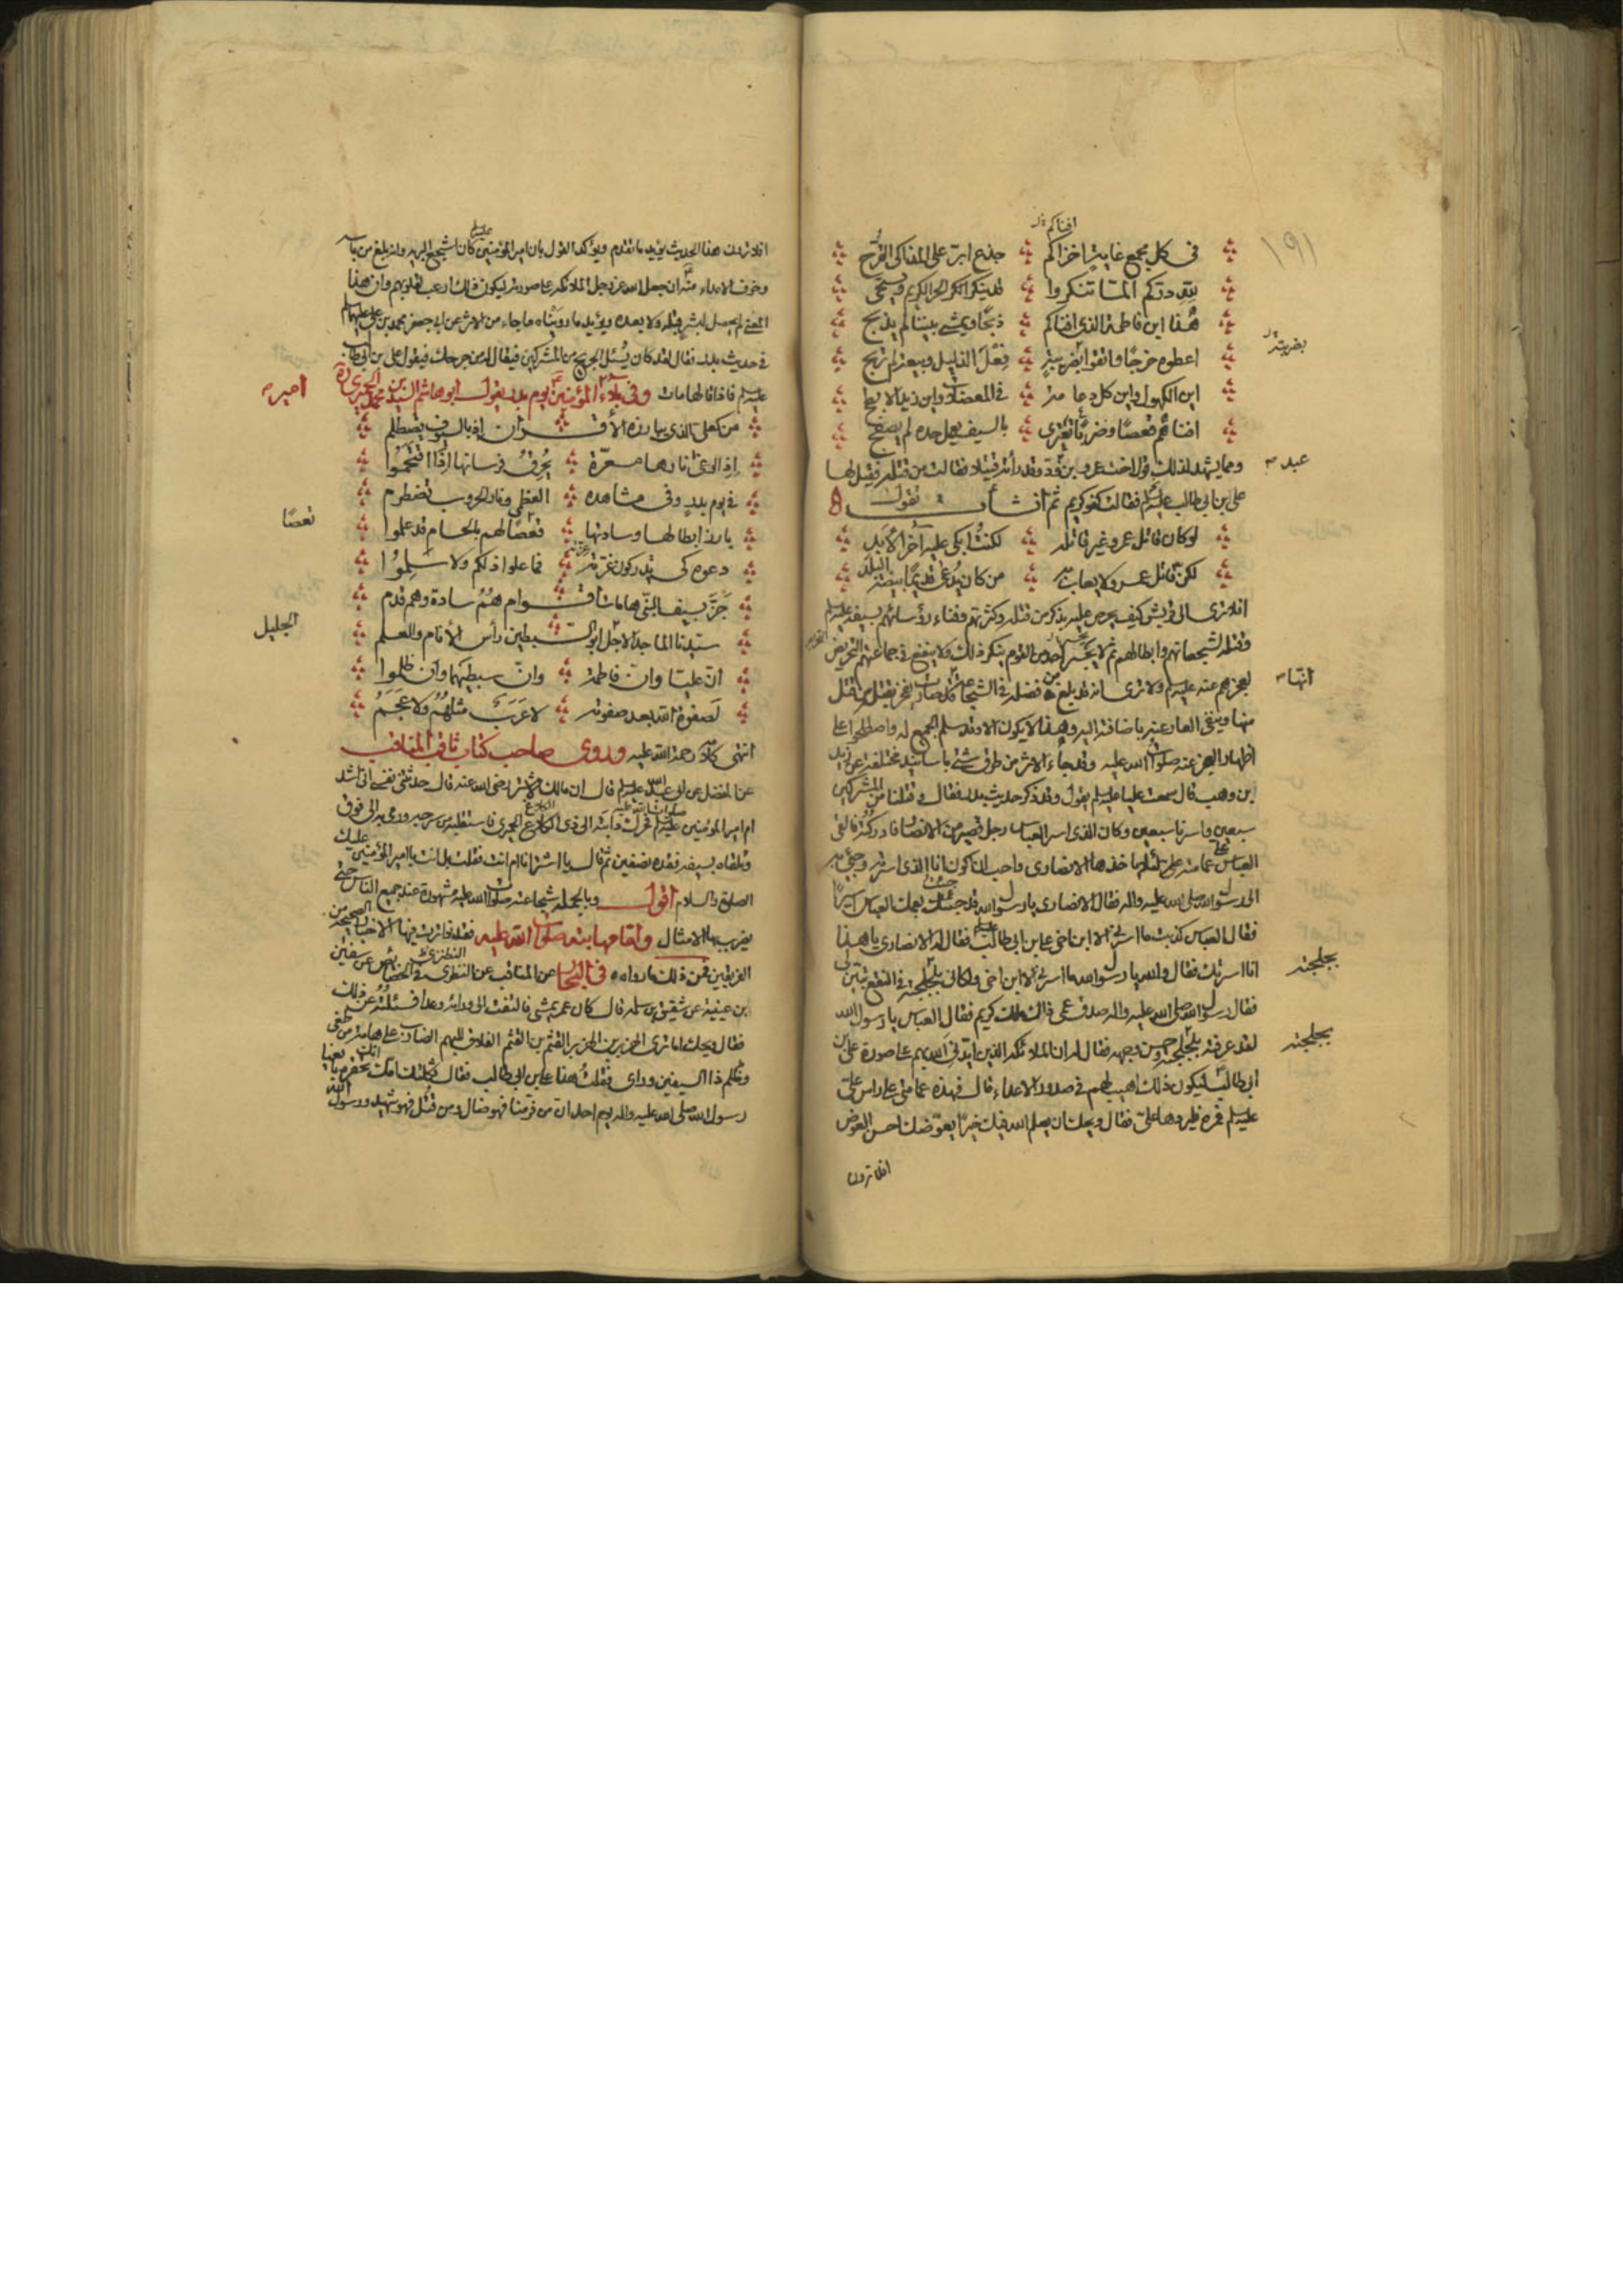 افناكم
١٩١
في كل مجمع غاية اخزاكم جذع ابرّ على المذاكى القُرّح
لله درّكم المّا تنكروا قد ينكر الحر الكريم ويستحى
هذا ابن فاطمة الذى افناكم ذبحًا ويمشى بيننا لم يذبح
اعطوه خرجًا واتقوا بضريبة فِعْلَ الذليل وبيعة لم تربح
اين الكهول واين كل دعامة في المعضلات واين زين الابطح
افناهم قعصًا وضربًا يفترى بالسيف يعمل حده لم يصفح
ومما يشهد لذلك قول اخت عمرو بن عبد ودّ وقد رأته قتيلًا فقالت من قتله فقيل لها
على بن ابى طالب فقالت كفو كريم ثم انشأت تقول
لو كان قاتل عمرو غير قاتله لكنتُ ابكى عليه آخر الأبد
لكن قاتل عمرو لا يعاب به من كان يُدعى قديمًا بيضة البلد
افلا ترى الى قريش كيف يحرض عليه بذكر من قتله وكثرتهم وفناء رؤسائهم بسيفه
وقتله لشجعانهم وابطالهم ثم لا يجسر احد من القوم ينكر ذلك ولا ينفع في جماعتهم التحريض
لعجزهم عنه ولا ترى انه قد بلغ من فضله في الشجاعة
منها وينفى العار عنه باضافته اليه وهذا لا يكون الا وقد سلم الجميع له واصطلحوا على
اظهار العجز عنه صلوات الله عليه وقد جاء الاثر من طرق شتى باسانيد مختلفة عن زيد
بن وهب قال سمعت عليا يقول وقد ذكر حديث بدر فقال و قتلنا من المشركين
سبعين واسرنا سبعين وكان الذى اسر العباس رجل قصير من الانصار فادركته فالقى
العباس علىّ عمامته لئلا ياخذها الانصارى واحب ان اكون انا الذى اسرته وجىء به
الى رسول الله صلى الله عليه واله فقال الانصارى يا رسول الله قد جئتك بعمك العباس اسيرًا
فقال العباس كذبت ما اسرنى الا ابن اخى على بن ابى طالب فقال له الانصارى يا هذا
انا اسرتك فقال والله يا رسول الله ما اسرنى الا ابن اخى ولكانى بجلحته في النقع تبين لى
فقال رسول الله صلى الله عليه واله صدق عمى ذاك ملك كريم فقال العباس يا رسول الله
لقد عرفته بجلحته وحسن وجهه فقال له ان الملائكة الذين ايّدنى الله بهم على صورة على بن
ابى طالب ليكون ذلك اهيب لهم في صدور الاعداء قال فهذه عمامتى على راس علىّ
فمره فليردها علىّ فقال ويحك ان يعلم الله فيك خيرًا يعوّضك احسن العوض
افلا ترون
بضريبة
عبد
انها
بجلحته
بجلحته
افلا ترون هذا الحديث يؤيد ما تقدم ويؤكد القول بان امير المؤمنين كان اشجع البرية وانه بلغ من باسه
وخوف الاعداء منه ان جعل الله عز وجل الملائكة على صورته ليكون ذلك ارعب لقلوبهم وان هذا
المعنى لم يحصل لبشر قبله ولا بعده ويؤيد ما رويناه ما جاء من الاثر عن ابى جعفر محمد بن على عليهما
في حديث بدر فقال لقد كان يُسئل الجريح من المشركين فيقال له من جرحك فيقول على بن ابى طالب
فاذا قالها مات وفى بلاء امير المؤمنين يوم بدر يقول ابو هاشم السيد بن محمد الحميرى
من كعلىّ الذى يبارزه الأقران اذ بالسيوف يصطلم
اذ الوغى نارها مسعّرة يُحرق فرسانها اذا اقتحموا
في يوم بدر وفى مشاهده العظمى ونار الحروب تضطرم
بارز ابطالها وسادتها قعصًا لهم بالحسام قد علموا
دعوه كى يدركون غرّته فما علوا ذلكم ولا سلموا
جَزّ بسيف النبى هامات أقوام هُمُ سادة وهم قدم
سيّدنا الماجد الاجل ابو السبطين رأس الأنام والعلم
انّ عليّا وانّ فاطمة وانّ سبطيهما وان ظلموا
لصفوة الله بعد صفوته لا عَرَبٌ مثلهُم ولا عَجَمُ
انتهى كلامه رحمة الله عليه وروى صاحب كتاب ثاقب المناقب
عن المفضل عن ابى عبد الله قال ان مالك الاشتر رضى الله عنه قال حدثتنى نفسى انى اشد
ام امير المؤمنين
وتلقاه بسيفه فقده نصفين ثم قال يا اشتر انا ام انت فقلت بل انت يا امير المؤمنين عليك
الصلوة والسلام اقول وبالجملة شجاعته صلوات الله عليه مشهورة عند جميع الناس حتى
يضرب بها الامثال واما مهابته صلوات الله عليه فقد تواترت فيها الاخبار الصحيحة من
الفريقين فمن ذلك ما رواه في البحار عن المناقب عن النطنزى في الخصائص عن سفين
بن عيينة عن شقيق بن سلمة قال كان عمر يمشى فالتفت الى ورائه وعدا فسئلته عن ذلك
فقال ويحك اما ترى الهزبر بن الهزبر القثم بن القثم الفلاق للبهم الضارب على هامة من طغى
وظلم ذا السيفين وراى فقلت هذا على بن ابى طالب فقال ثكلتك امك انك تحقره بايعنا
رسول الله صلى الله عليه واله يوم احد ان من فرّ منا فهو ضال ومن قُتل فهو شهيد ورسول الله
قعصًا
الجليل